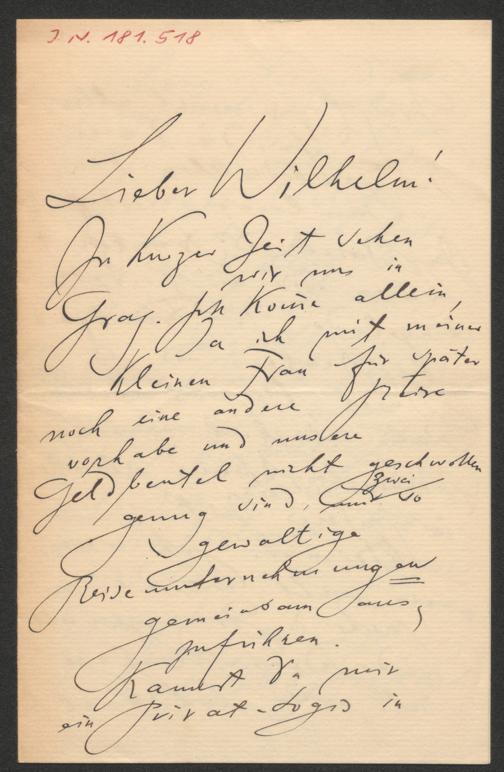 I. N. 181.518
Lieber Wilhelm!
In kurzer Zeit sehen
wir uns in
Graz. Ich kom̄e allein,
da ich mit meiner
kleinen Frau für später
noch eine andere Reise
vorhabe und unsere
Geldbeutel nicht geschwollen
genug sind, um zwei so
gewaltige
Reiseunternehmungen
gemeinsam aus-
zuführen.
Kannst Du mir
ein Privat-Logis in